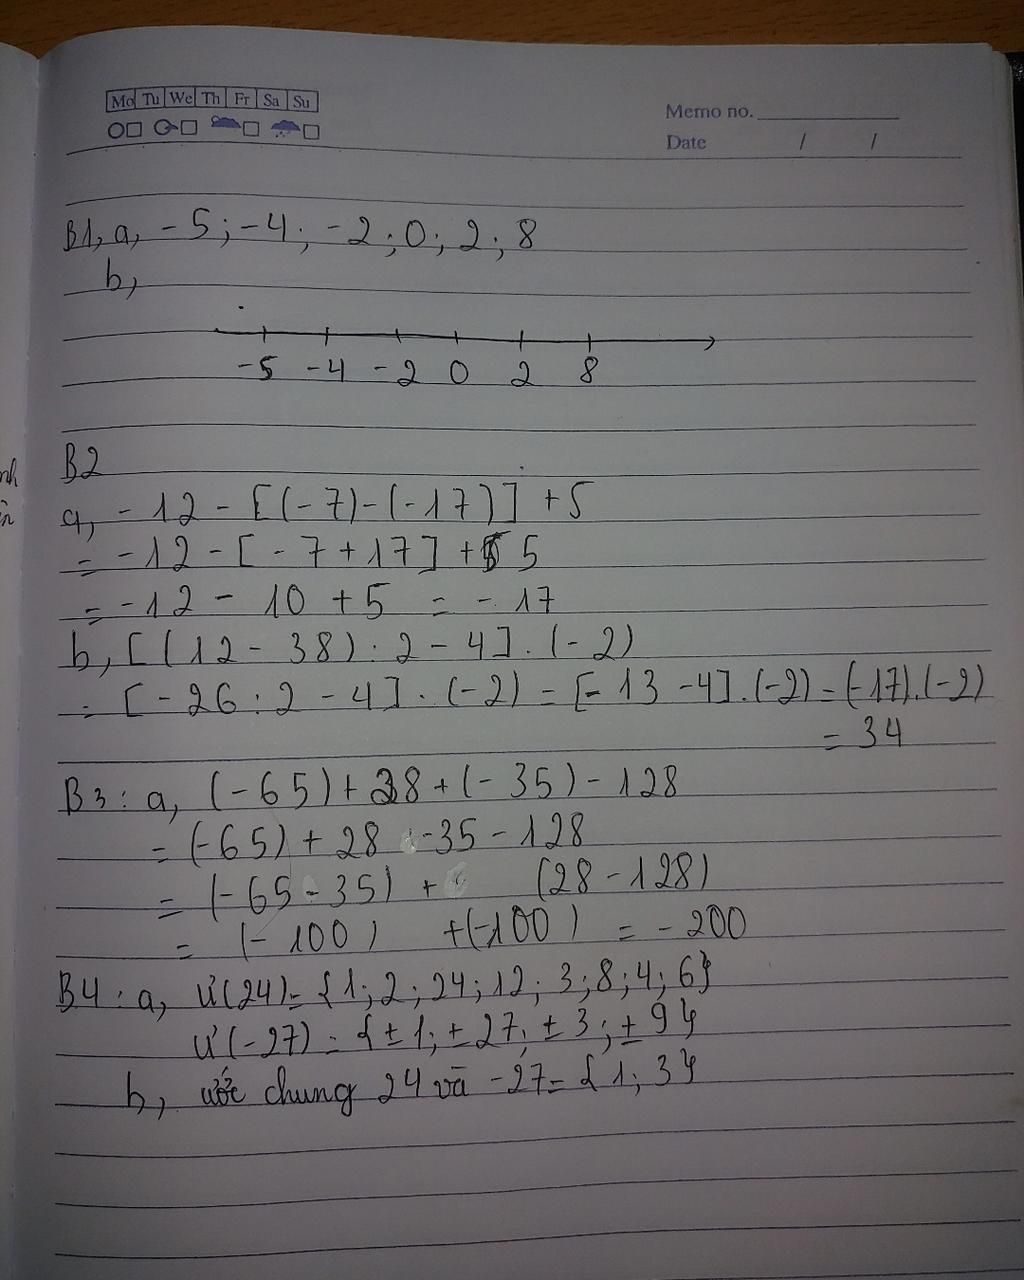 Mo Tu We Th Fr Sa Su
Memo no.
Date / /
B1, a, -5; -4; -2; 0; 2; 8
b,
-5 -4 -2 0 2 8
B2
a, -12 - [(-7)-(-17)] +5
= -12 - [-7+17] + 5
= -12 - 10 + 5 = -17
b, [(12 - 38) : 2 - 4] . (-2)
= [-26 : 2 - 4] . (-2) = [-13 -4] . (-2) = (-17) . (-2)
= 34
B3 : a, (-65) + 28 + (-35) - 128
= (-65) + 28 -35 - 128
= (-65 - 35) + (28 - 128)
= (-100) + (-100) = -200
B4 : a, Ư(24) = {1; 2; 24; 12; 3; 8; 4; 6}
Ư(-27) = {±1; ±27; ±3; ±9}
b, ước chung 24 và -27 = {1; 3}